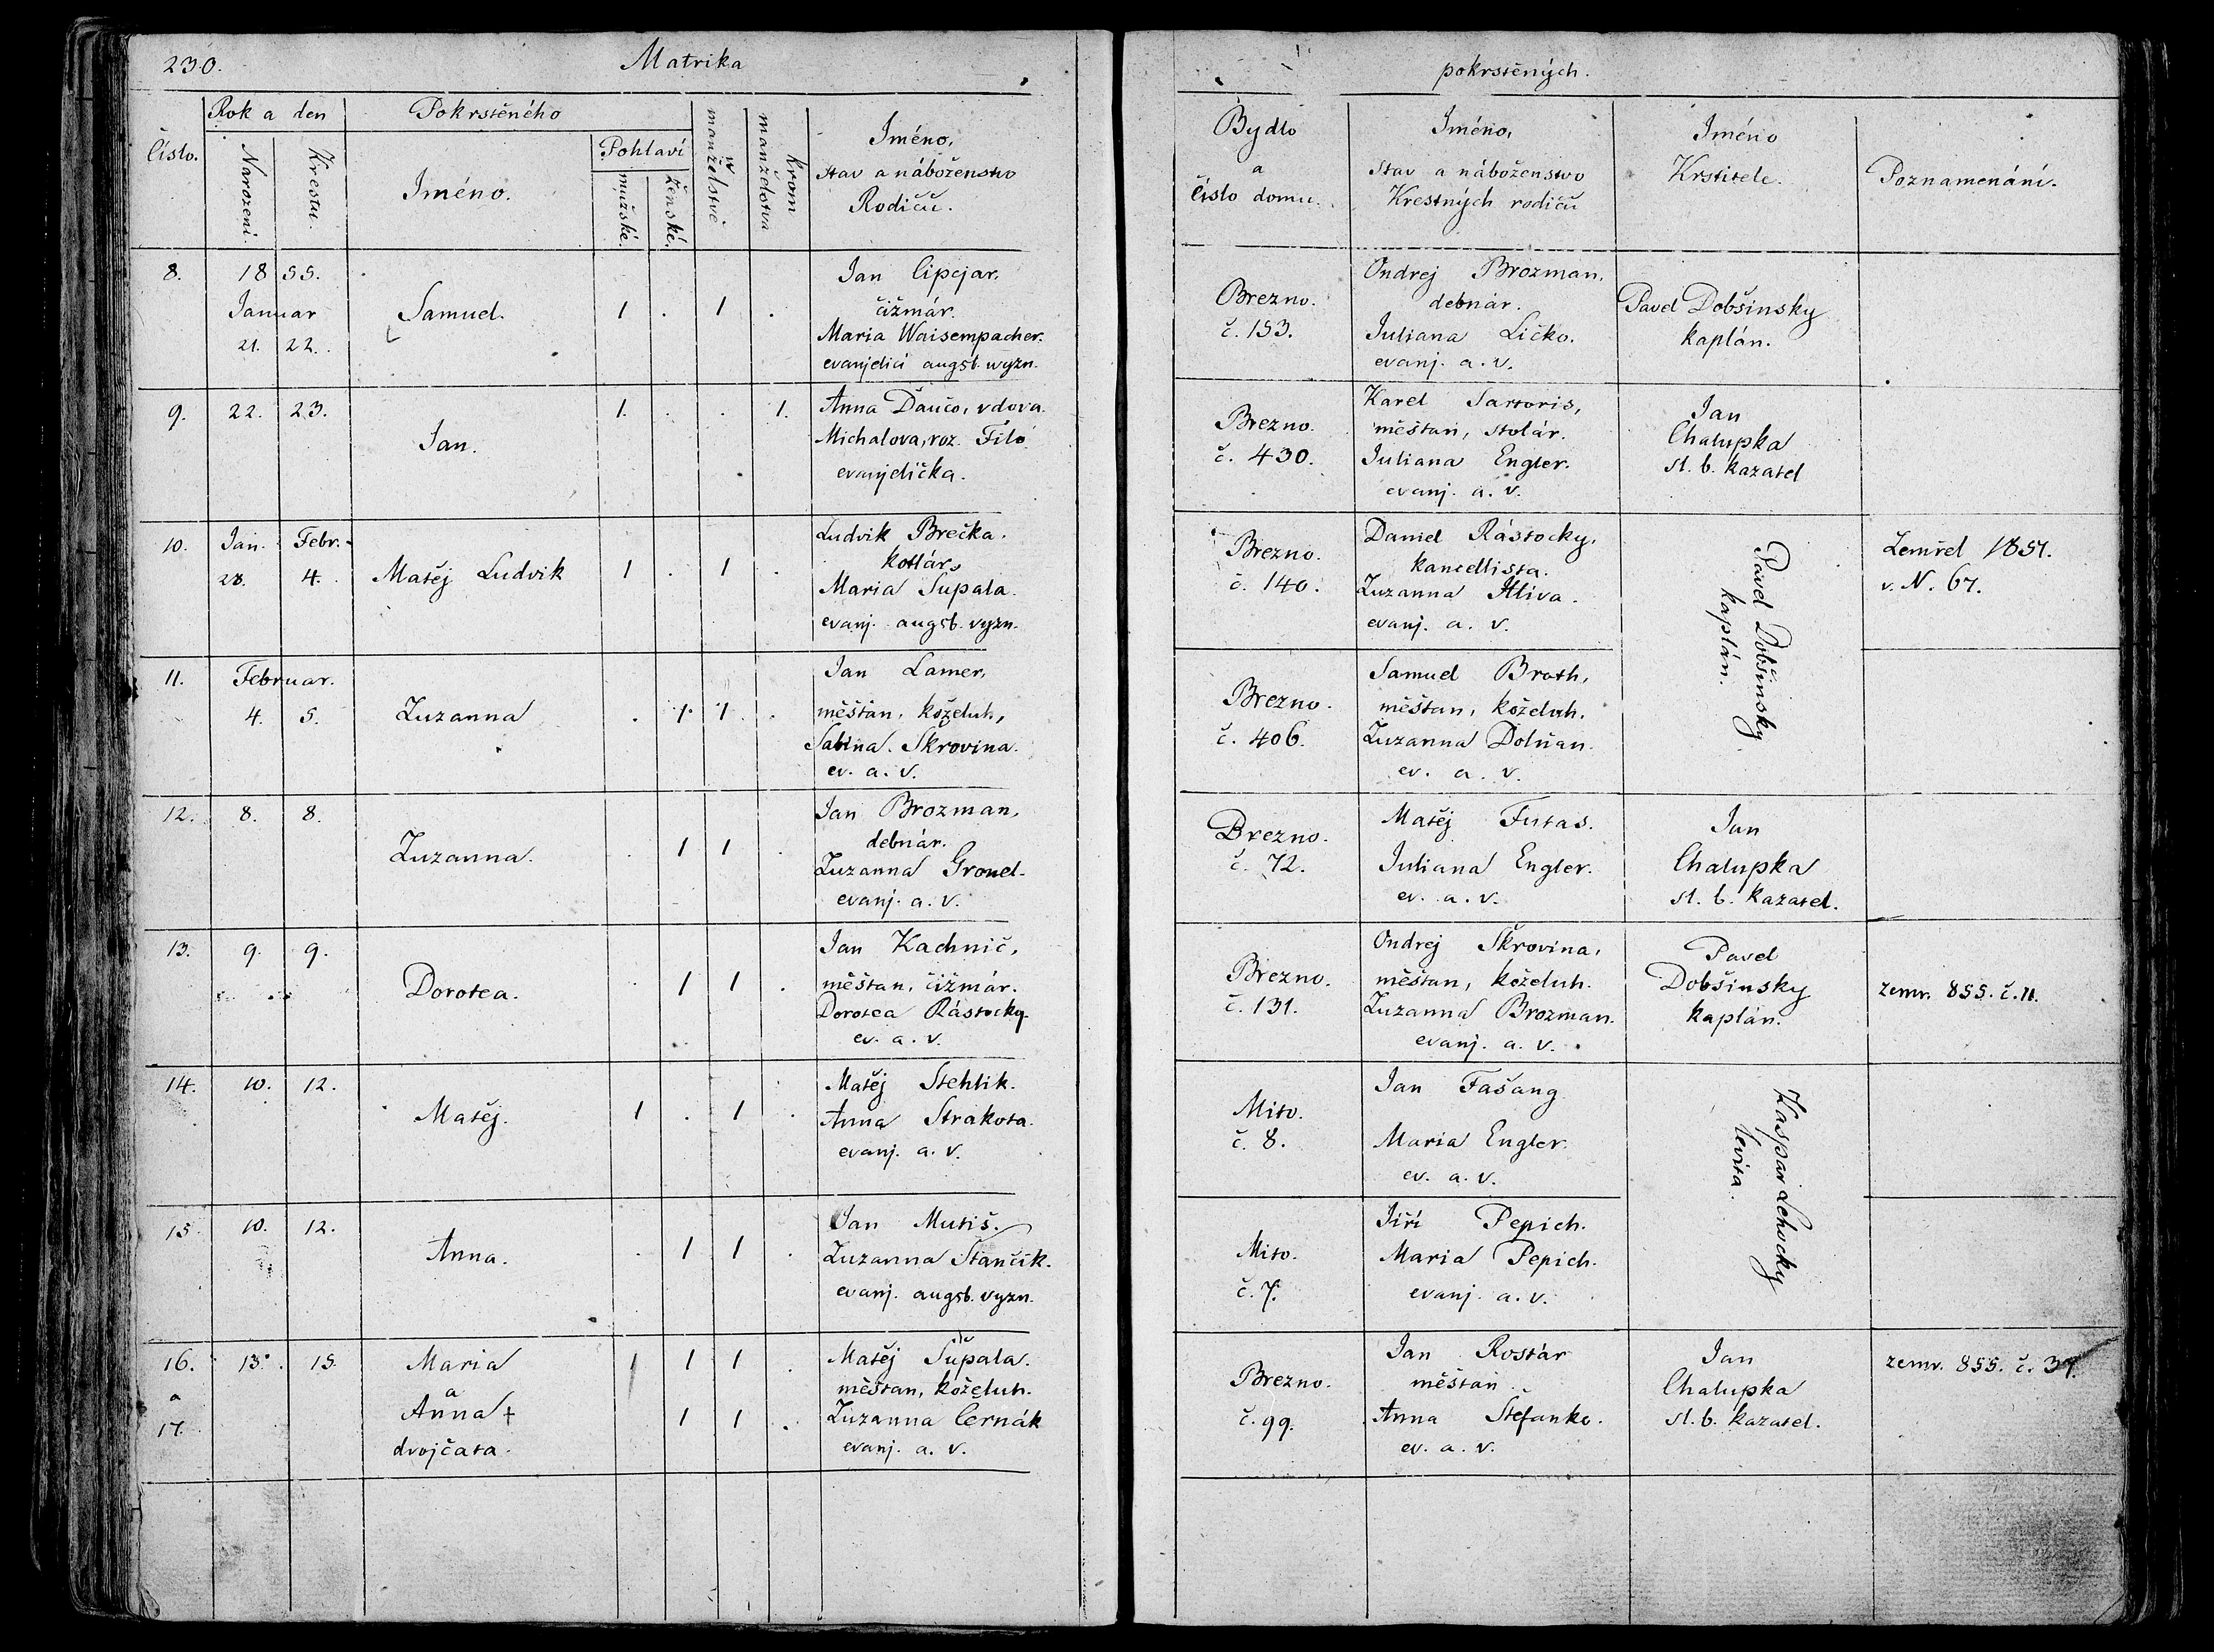 230.
Matrika
pokrstěných.
Číslo.
Rok a den
Narození.
Krestu.
Pokrstěného
Iméno.
Pohlaví
mužské.
ženské.
w manželstvě
krom manželstva
Iméno,
stav a náboženstvo
Rodičů.
Bydlo
a
číslo domu.
Iméno,
Stav a náboženstvo
Krestných rodičů
Iméno
Krstitele.
Poznamenání.
8.
1855.
Januar
21. 22.
Samuel.
1 . 1 .
Jan Cipejar.
čižmár.
Maria Waisempacher.
evanjelici augsb. wyzn.
Brezno.
č. 153.
Ondrej Brozman.
debnár.
Juliana Ličko.
evanj. a. v.
Pavel Dobšinsky
kaplán.
9. 22. 23.
Jan.
1. . . 1.
Anna Daučo, vdova.
Michalova, roz. Filo
evanjelička.
Brezno.
č. 430.
Karel Sartoris,
měštan, stolár.
Juliana Engler.
evanj. a. v.
Jan
Chalupka
sl. b. kazatel
10. Jan. Febr.
28. 4.
Matěj Ludvik
1 . 1 .
Ludvik Brečka.
kotlár.
Maria Supala.
evanj. augsb. vyzn.
Brezno.
č. 140.
Daniel Rástocky.
kancellista.
Zuzanna Hliva.
evanj. a. v.
Pavel Dobšinsky
kaplán.
Zemřel 1857.
v. N. 67.
11. Februar.
4. 5.
Zuzanna
. 1 1 .
Jan Lamer,
měštan, koželuh,
Sabina Skrovina.
ev. a. v.
Brezno.
č. 406.
Samuel Broth,
měštan, koželuh.
Zuzanna Dolňan.
ev. a. v.
12. 8. 8.
Zuzanna.
. 1 1 .
Jan Brozman,
debnár.
Zuzanna Gronel.
evanj. a. v.
Brezno.
č. 72.
Matěj Futas.
Juliana Engler.
ev. a. v.
Jan
Chalupka
sl. b. kazatel.
13. 9. 9.
Dorotea.
. 1 1 .
Jan Kachnič,
měštan, čižmár.
Dorotea Rástocky.
ev. a. v.
Brezno.
č. 131.
Ondrej Škrovina,
měštan, koželuh.
Zuzanna Brozman.
evanj. a. v.
Pavel
Dobšinsky
kaplán.
zemr. 855. č. 11.
14. 10. 12.
Matěj.
1 . 1 .
Matěj Stehlik.
Anna Strakota.
evanj. a. v.
Mito.
č. 8.
Jan Fašang
Maria Engler.
ev. a. v.
Kaspar Lehocky
levita.
15. 10. 12.
Anna.
. 1 1 .
Jan Mutiš.
Zuzanna Stančik.
evanj. augsb. vyzn.
Mito.
č. 7.
Jiří Pepich.
Maria Pepich.
evanj. a. v.
16. 13. 15.
a
17.
Maria
a
Anna †
dvojčata.
1 1 1 .
1 1 .
Matěj Supala.
měštan, koželuh.
Zuzanna Černák
evanj. a. v.
Brezno.
č. 99.
Jan Rostár
měštan
Anna Štefanko.
ev. a. v.
Jan
Chalupka
sl. b. kazatel.
zemr. 855. č. 37.